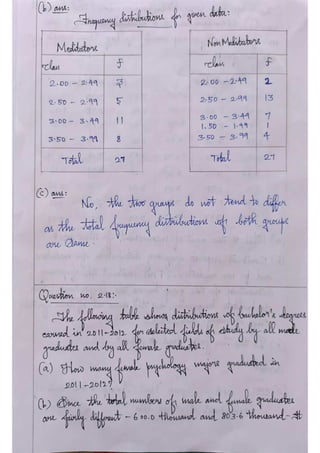 (b) ans:
Frequency distributions for given data:
Meditators
clan f
2.00 - 2.49 3
2.50 - 2.99 5
3.00 - 3.49 11
3.50 - 3.99 8
Total 27
Non Meditators
clan f
2.00 - 2.49 2
2.50 - 2.99 13
3.00 - 3.49 7
1.50 - 1.99 1
3.50 - 3.99 4
Total 27
(c) ans:
No, the two groups do not tend to differ
as the total frequency distributions of both groups
are same.
Question no. 2.18:-
The following table shows distributions of bachelor's degrees
earned in 2011-2012 for selected fields of study by all male
graduates and by all female graduates.
(a) How many female psychology majors graduated in
2011-2012?
(b) Since the total numbers of male and female graduates
are fairly different - 600.0 thousand and 803.6 thousand -